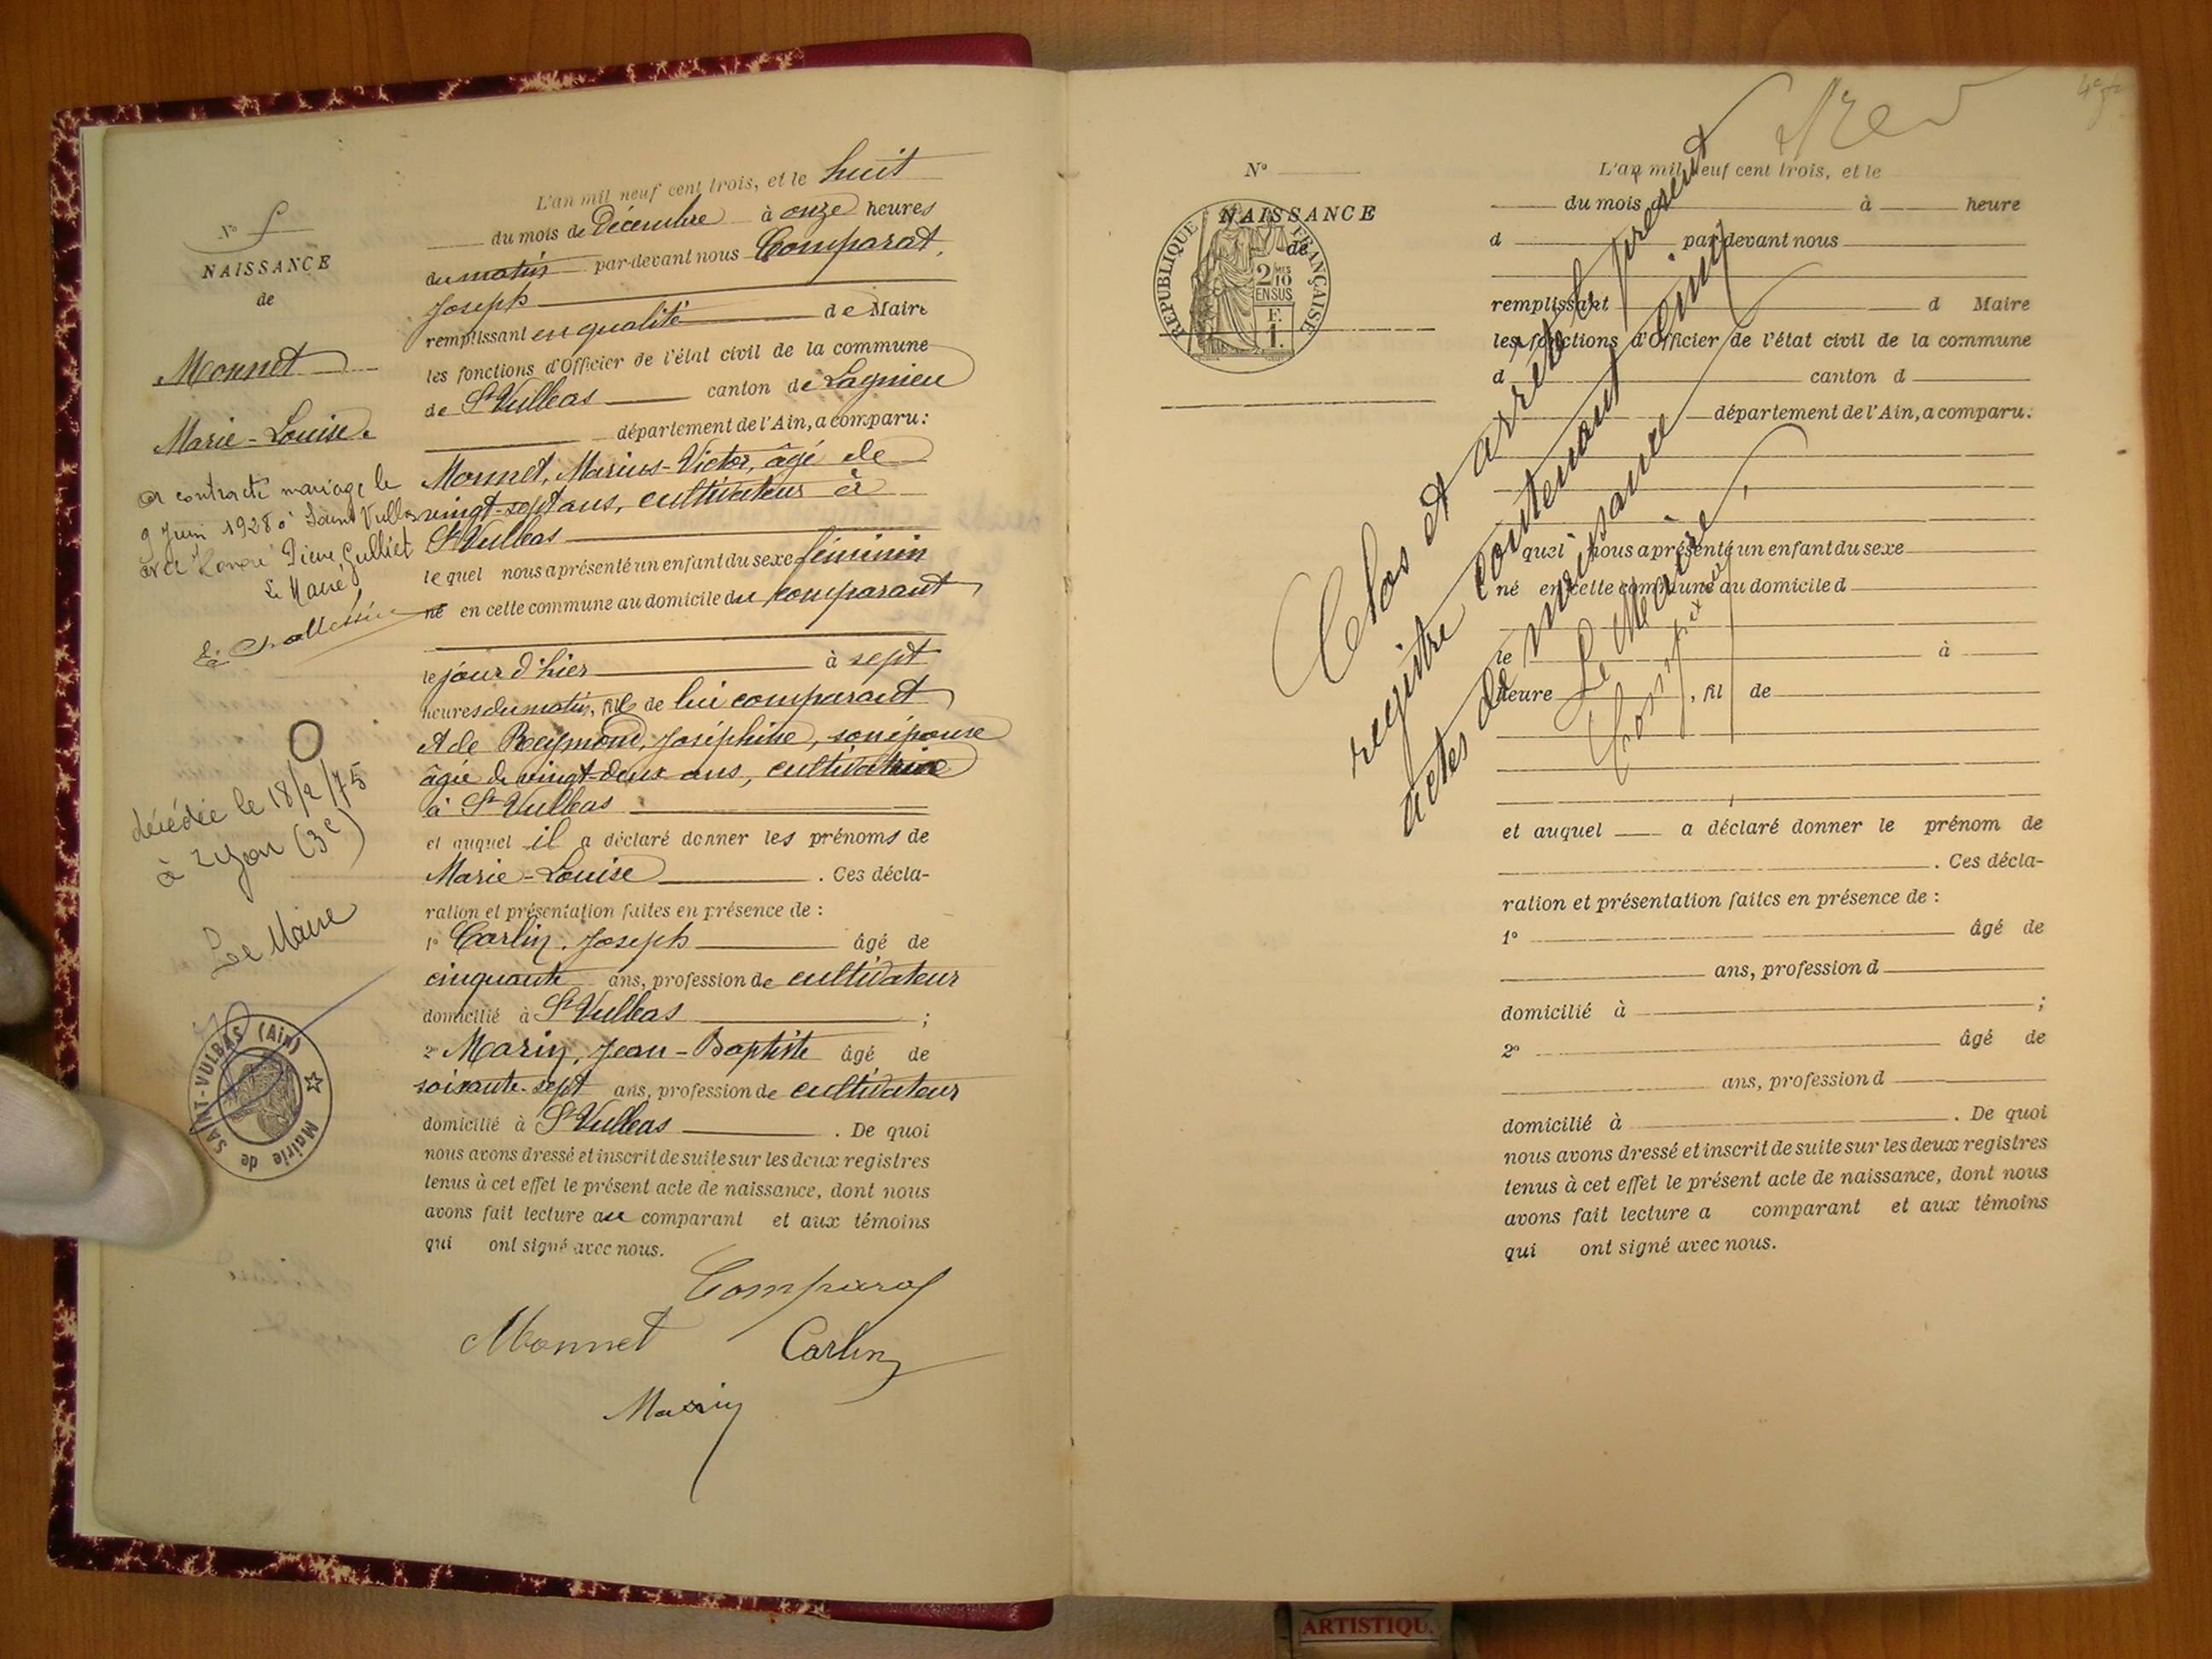 Nº 5
NAISSANCE
de
Monnet
Marie-Louise.
a contracté mariage le
9 Juin 1928 à Saint Vulbas
avec Pierre Gulliet
Le Maire
décédée le 18/2/75
à Lyon (3e)
Le Maire
Mairie de SAINT-VULBAS (Ain)
L'an mil neuf cent trois, et le huit
du mois de Décembre à onze heures
du matin par-devant nous Comparat,
Joseph
remplissant en qualité de Maire
les fonctions d'Officier de l'état civil de la commune
de St Vulbas canton de Lagnieu
département de l'Ain, a comparu :
Monnet, Marius-Victor, âgé de
vingt-sept ans, cultivateur à
St Vulbas
lequel nous a présenté un enfant du sexe féminin
né en cette commune au domicile du comparant
le jour d'hier à sept
heures du matin, fille de lui comparant
et de Reymond, Joséphine, son épouse
âgée de vingt-deux ans, cultivatrice
à St Vulbas
et auquel il a déclaré donner les prénoms de
Marie-Louise. Ces décla-
ration et présentation faites en présence de :
1º Carlin, Joseph âgé de
cinquante ans, profession de cultivateur
domicilié à St Vulbas ;
2º Marin, Jean-Baptiste âgé de
soixante-sept ans, profession de cultivateur
domicilié à St Vulbas. De quoi
nous avons dressé et inscrit de suite sur les deux registres
tenus à cet effet le présent acte de naissance, dont nous
avons fait lecture au comparant et aux témoins
qui ont signé avec nous.
Comparat
Monnet Carlin
Marin
Nº
NAISSANCE
de
REPUBLIQUE FRANÇAISE
2/10 MES
EN SUS
F.
1.
L'an mil neuf cent trois, et le
du mois d à heure
d par-devant nous
remplissant d Maire
les fonctions d'Officier de l'état civil de la commune
d canton d
département de l'Ain, a comparu :
quel nous a présenté un enfant du sexe
né en cette commune au domicile d
le à
heure , fil de
et auquel a déclaré donner le prénom de
. Ces décla-
ration et présentation faites en présence de :
1º âgé de
ans, profession d
domicilié à ;
2º âgé de
ans, profession d
domicilié à . De quoi
nous avons dressé et inscrit de suite sur les deux registres
tenus à cet effet le présent acte de naissance, dont nous
avons fait lecture a comparant et aux témoins
qui ont signé avec nous.
Clos et arrêté le présent
registre contenant cinq
actes de naissance
Le Maire,
ARTISTIQU